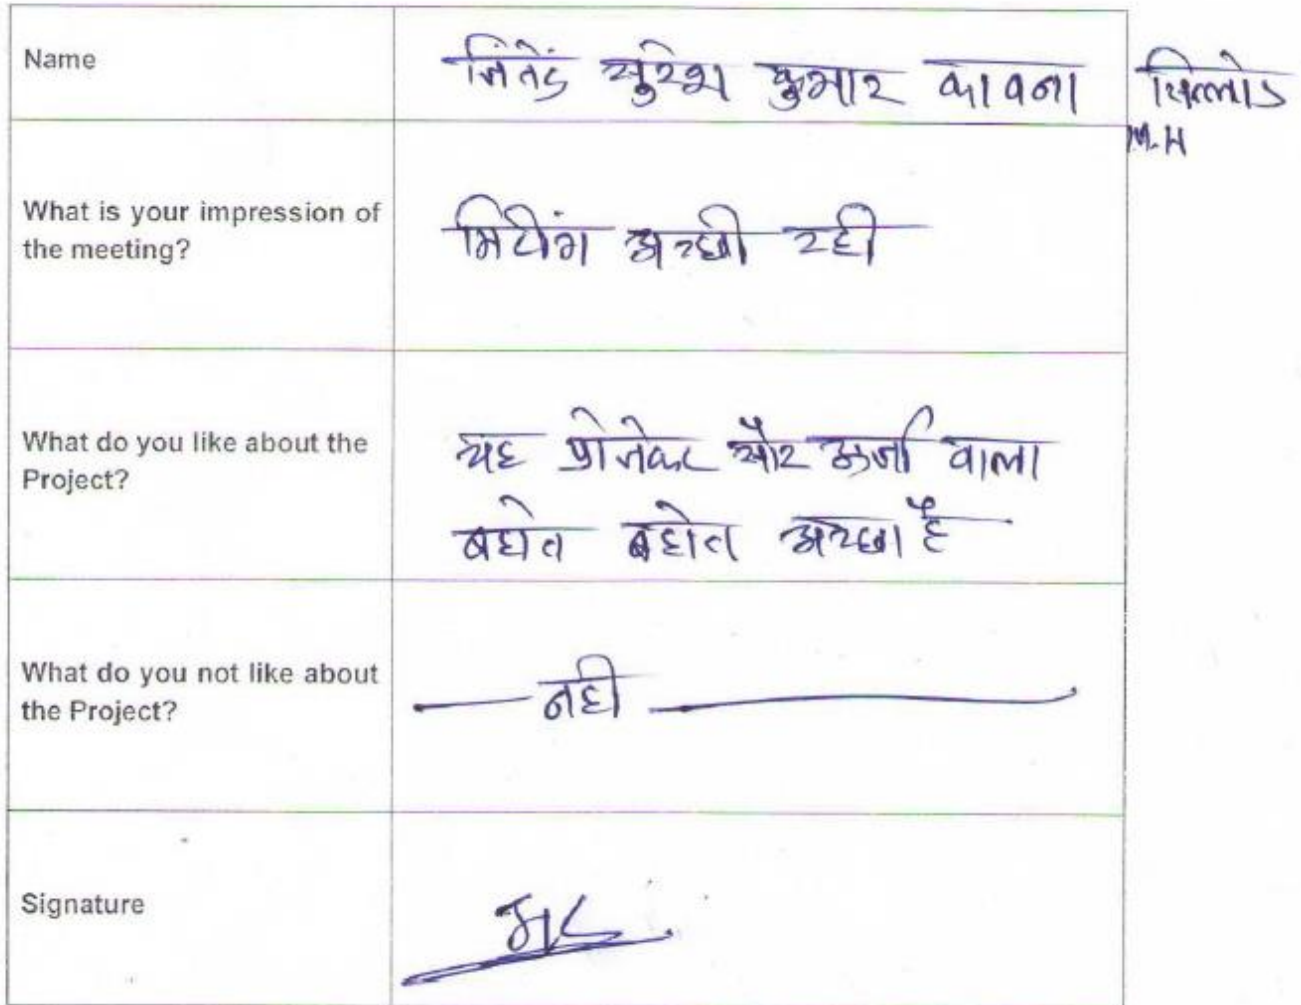 Name
जितेंद्र सुरेश कुमार कावना सिल्लोड
M.H
What is your impression of
the meeting?
मिटींग अच्छी रही
What do you like about the
Project?
यह प्रोजेक्ट और ऊर्जा वाला
बहोत बहोत अच्छा है
What do you not like about
the Project?
नही
Signature